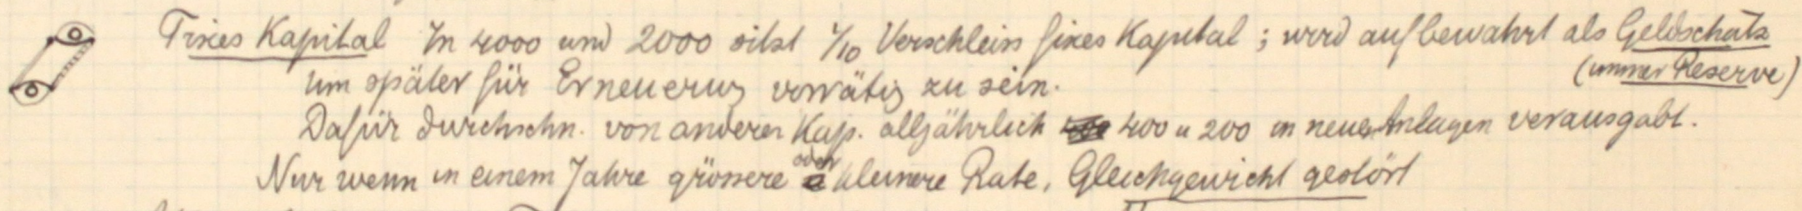 Fixes Kapital In 4000 und 2000 sitzt 1/10 Verschleiss fixes Kapital; wird aufbewahrt als Geldschatz
(immer Reserve)
um später für Erneuerung vorrätig zu sein.
Dafür durchschn. von anderen Kap. alljährlich 400 u 200 in neuen Anlagen verausgabt.
Nur wenn in einem Jahre grössere oder kleinere Rate, Gleichgewicht gestört